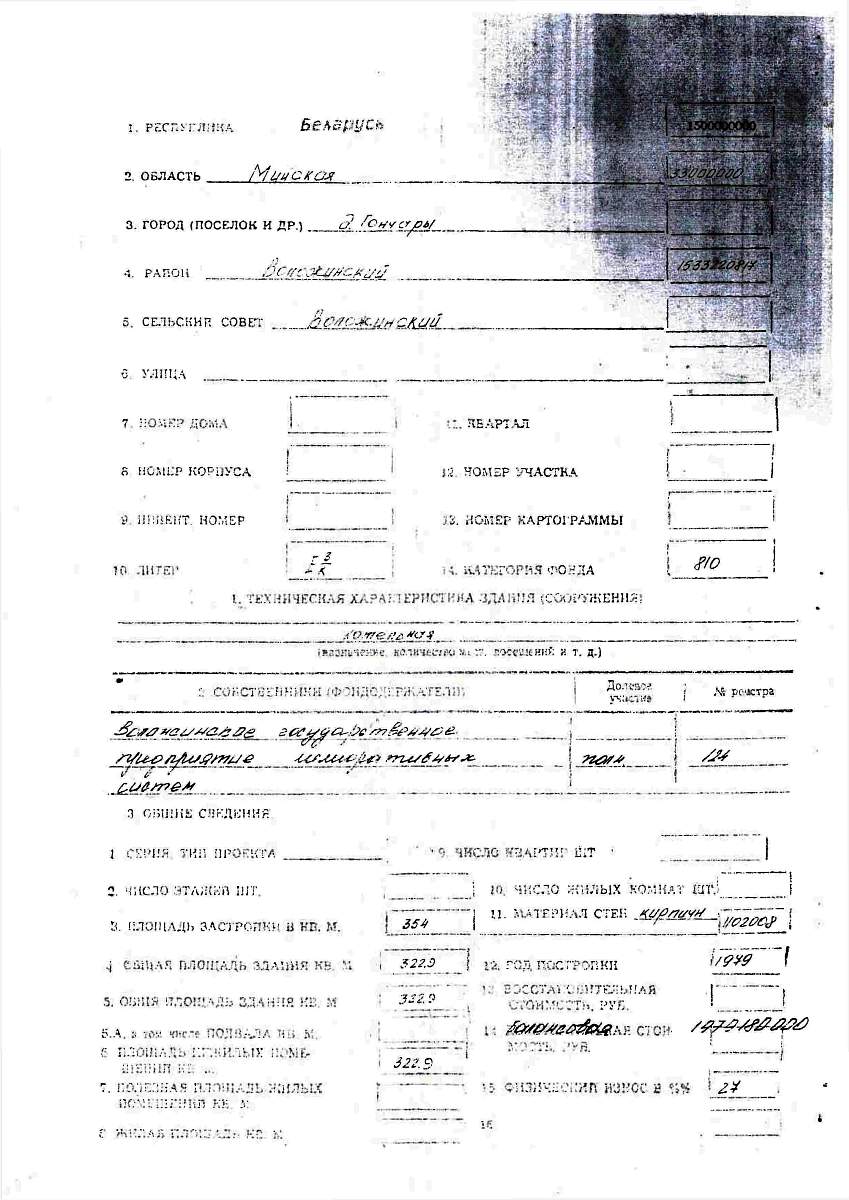 1. РЕСПУБЛИКА Беларусь 1500000000
2. ОБЛАСТЬ Минская 33000000
3. ГОРОД (ПОСЕЛОК И ДР.) д. Гончары
4. РАЙОН Воложинский
5. СЕЛЬСКИЙ СОВЕТ Воложинский
6. УЛИЦА
7. НОМЕР ДОМА 11. КВАРТАЛ
8. НОМЕР КОРПУСА 12. НОМЕР УЧАСТКА
9. ИНВЕНТ. НОМЕР 13. НОМЕР КАРТОГРАММЫ
10. ЛИТЕР 14. КАТЕГОРИЯ ФОНДА 810
1. ТЕХНИЧЕСКАЯ ХАРАКТЕРИСТИКА ЗДАНИЯ (СООРУЖЕНИЯ)
котельная
(назначение, количество помещений и т. д.)
2. СОБСТВЕННИКИ (ФОНДОДЕРЖАТЕЛИ) Долевое участие № реестра
Воложинское государственное
предприятие мелиоративных полн. 124
систем
3 ОБЩИЕ СВЕДЕНИЯ
1 СЕРИЯ, ТИП ПРОЕКТА 9. ЧИСЛО КВАРТИР ШТ
2. ЧИСЛО ЭТАЖЕЙ ШТ. 10. ЧИСЛО ЖИЛЫХ КОМНАТ ШТ.
3. ПЛОЩАДЬ ЗАСТРОЙКИ В КВ. М. 354 11. МАТЕРИАЛ СТЕН кирпичн 1102008
4 ОБЩАЯ ПЛОЩАДЬ ЗДАНИЯ КВ. М 322.9 12. ГОД ПОСТРОЙКИ 1979
5. ОБЩАЯ ПЛОЩАДЬ ЗДАНИЯ КВ. М 322.9 13 ВОССТАНОВИТЕЛЬНАЯ СТОИМОСТЬ, РУБ.
5.А, в том числе ПОДВАЛА КВ. М. 14 балансовая СТОИМОСТЬ, РУБ. 1979180000
6 ПЛОЩАДЬ НЕЖИЛЫХ ПОМЕЩЕНИЙ КВ. М. 322.9
7. ПОЛЕЗНАЯ ПЛОЩАДЬ ЖИЛЫХ ПОМЕЩЕНИЙ КВ. М 15 ФИЗИЧЕСКИЙ ИЗНОС В %% 27
8 ЖИЛАЯ ПЛОЩАДЬ КВ. М 16